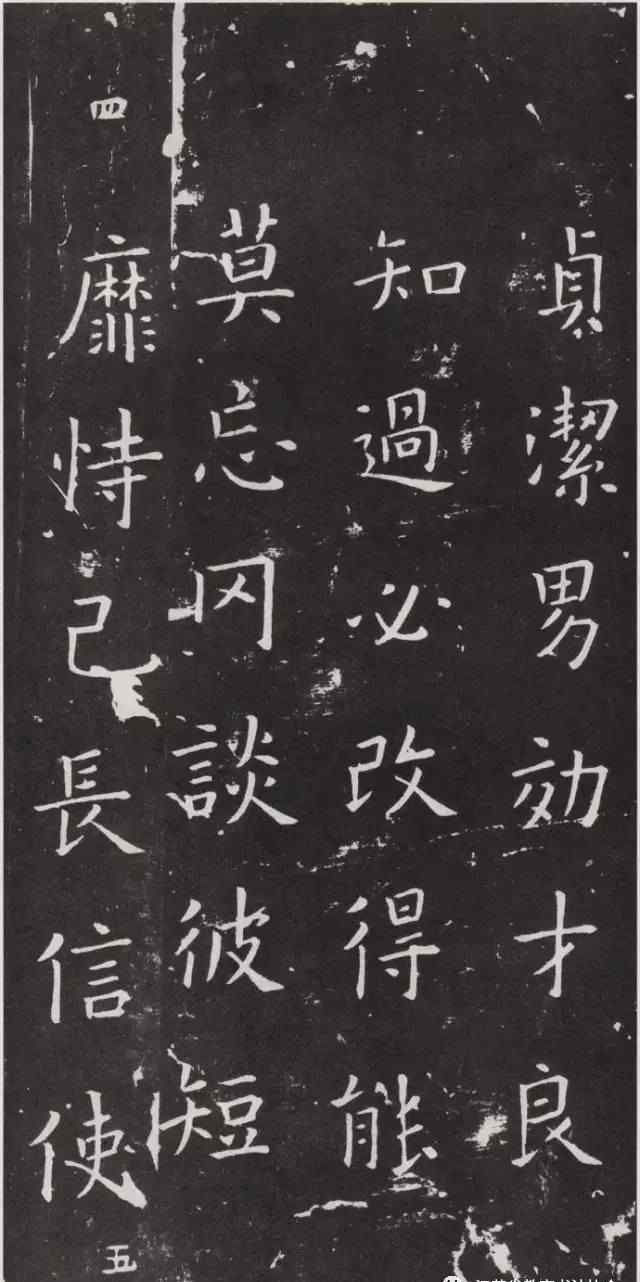 貞潔男効才良
知過必改得能
莫忘罔談彼短
靡恃己長信使
四
五